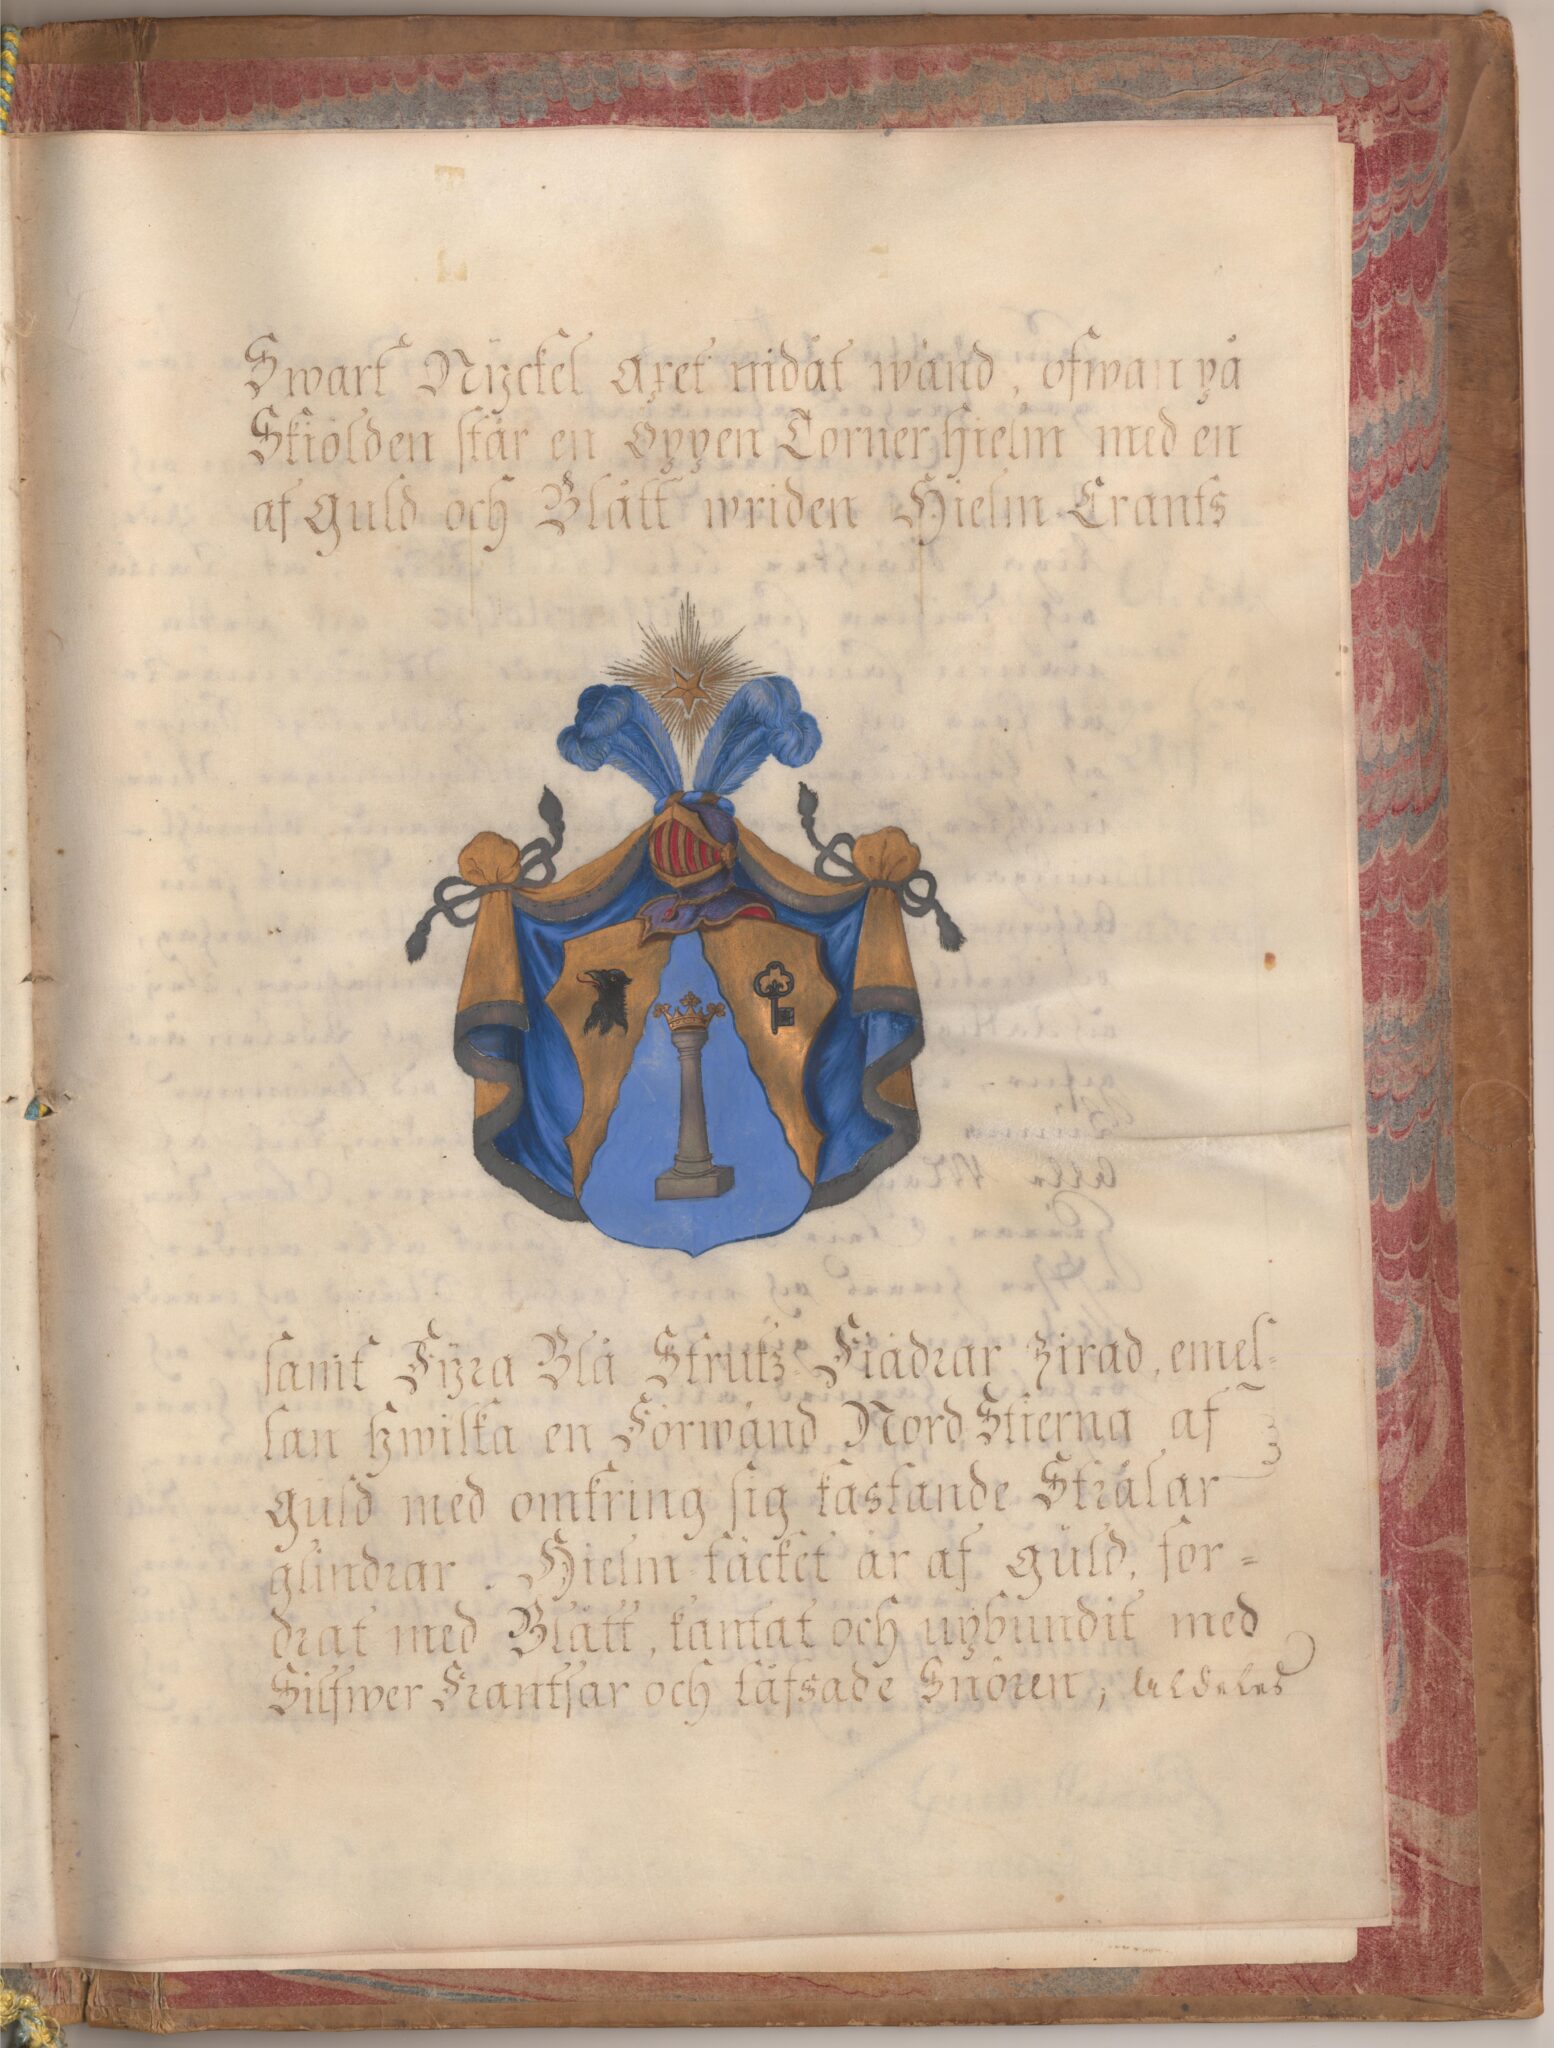 Swart Nyckel Axet nidåt wänd, ofwan på
Skiölden står en Öppen Torner hielm med en
af Guld och Blått wriden Hielm-Crants
samt Fyra Blå Strutz Fiädrar Zirad, emel-
lan hwilka en Förwänd Nord Stierna af
Guld med omkring sig kastande Strålar
glindrar. Hielm-täcket är af Guld, for-
drat med Blått, kantat och upbundit med
Silfwer Frantsar och tåfsade Snören, Aldeles